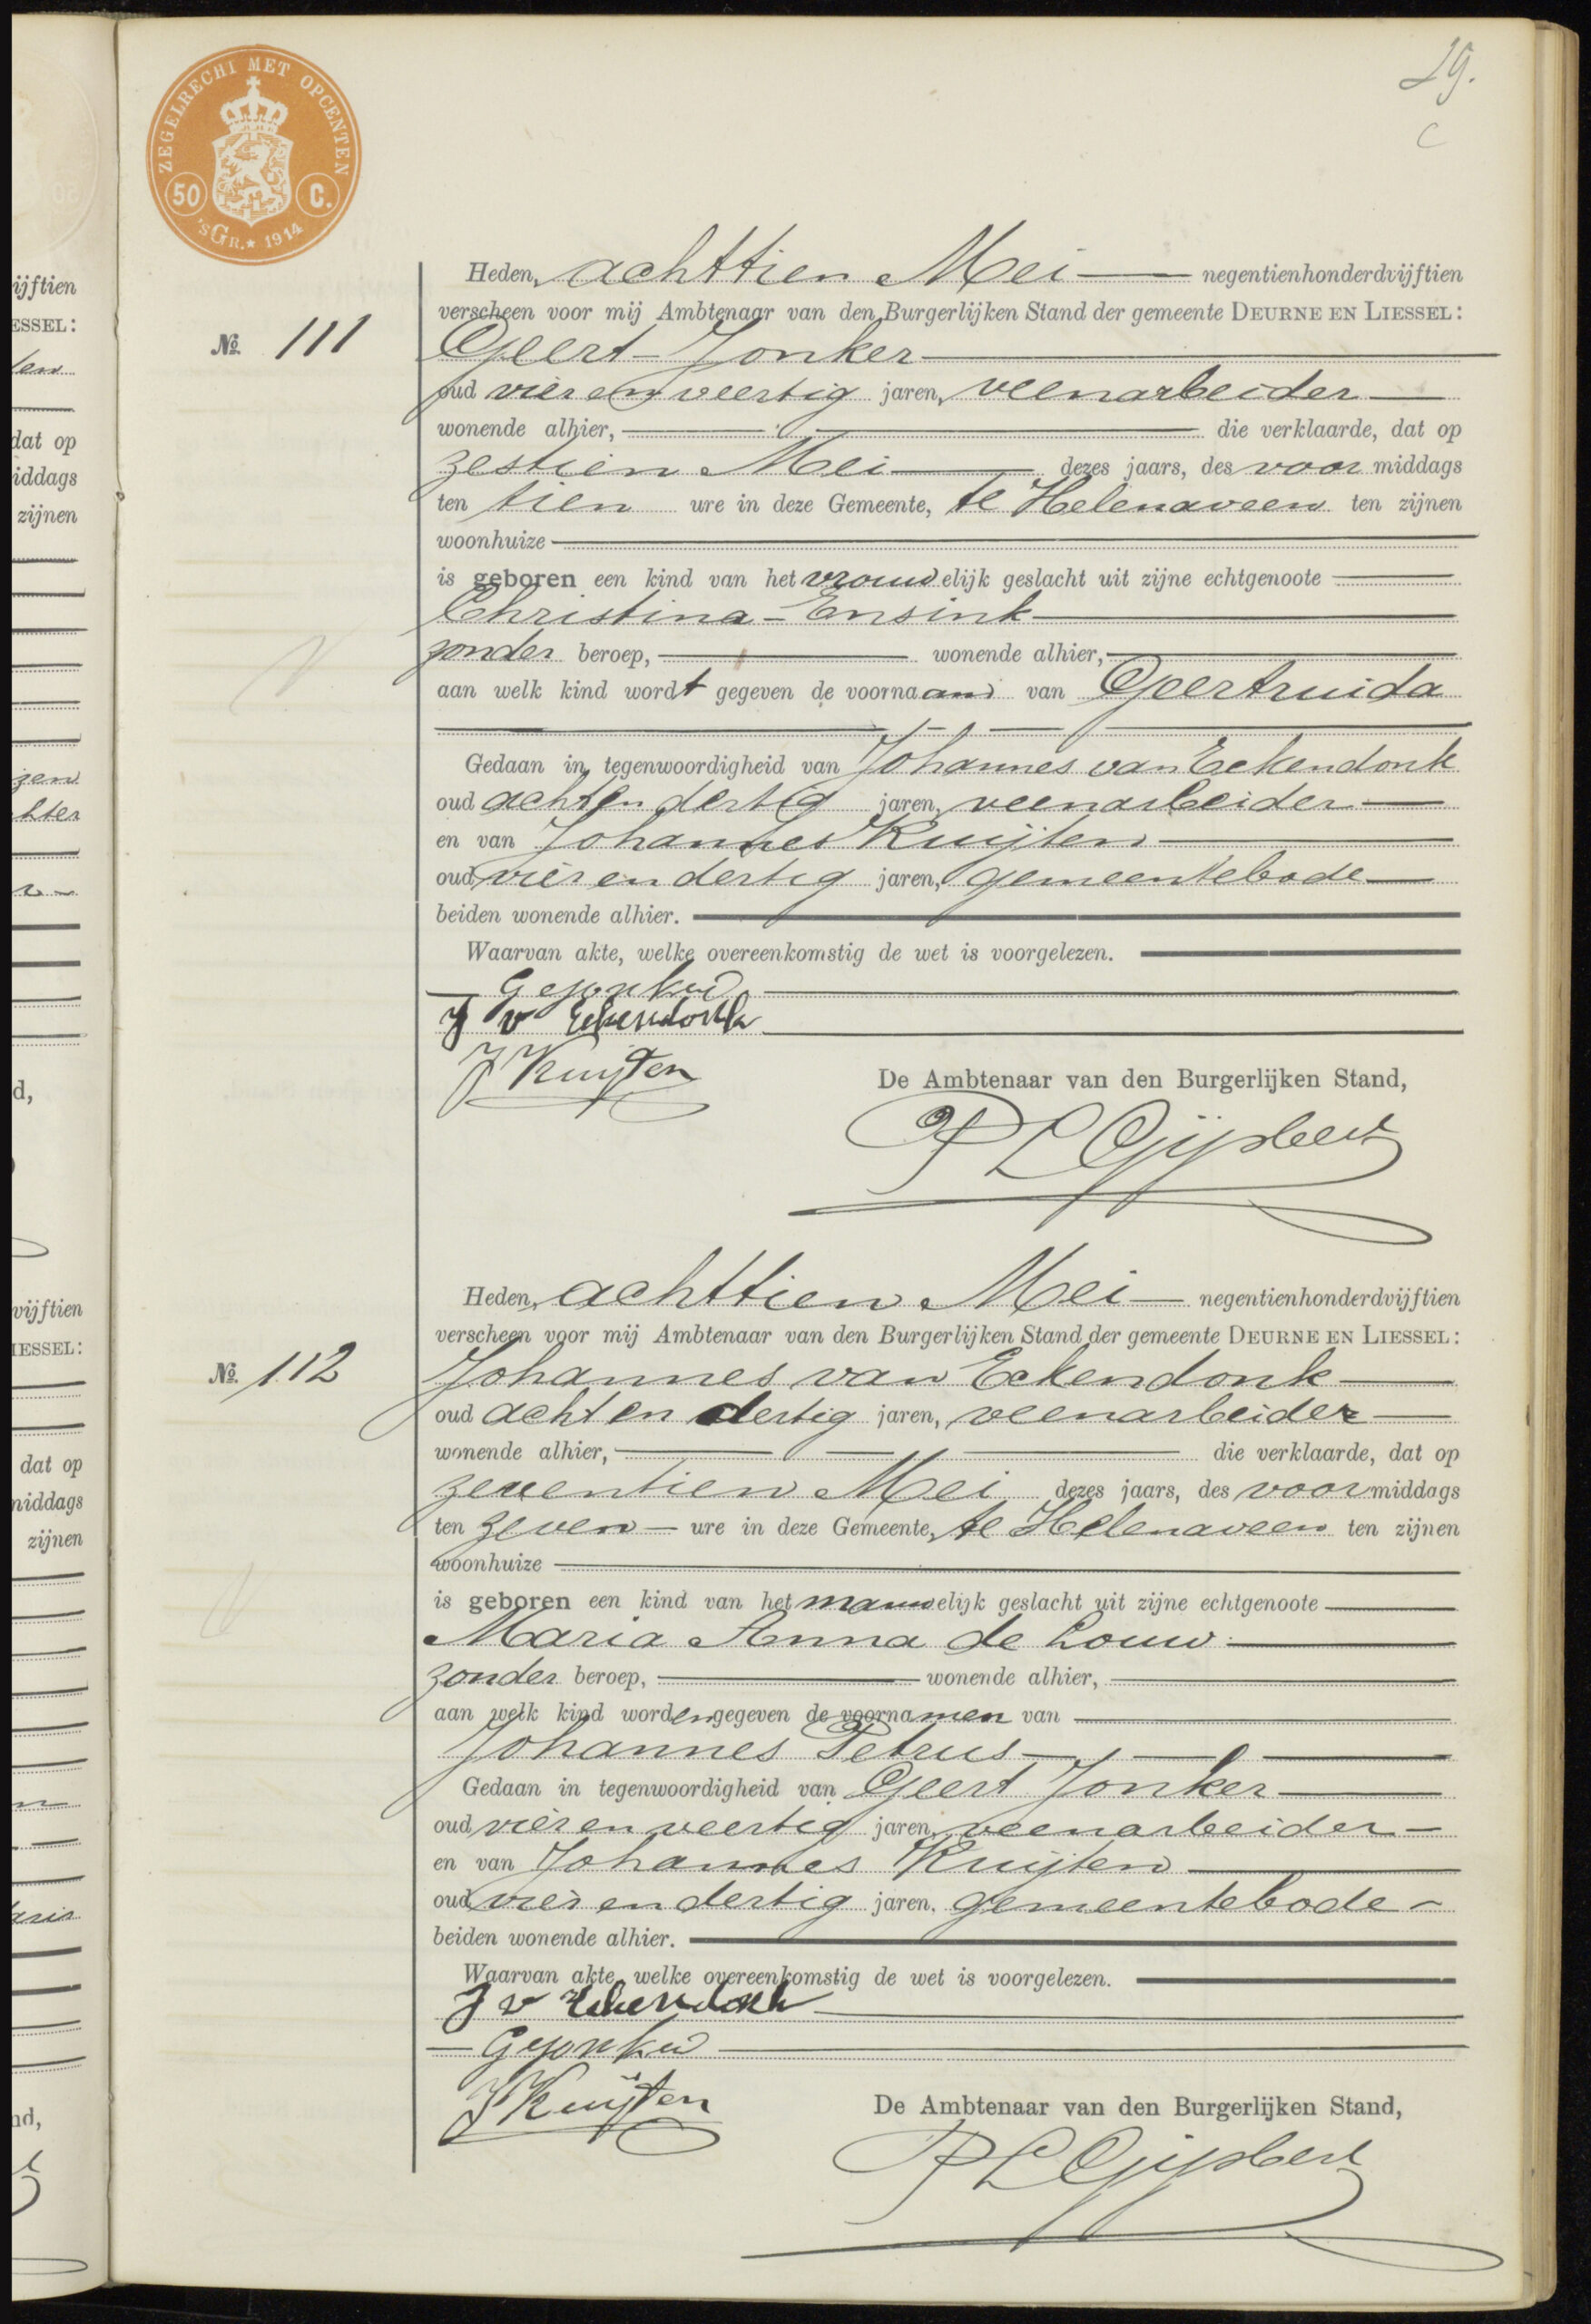 29.
c
ZEGELRECHT MET OPCENTEN
50 C.
'sGR.★ 1914
Heden, achttien Mei negentienhonderdvijftien
verscheen voor mij Ambtenaar van den Burgerlijken Stand der gemeente DEURNE EN LIESSEL:
№ 111
Geert Jonker
oud vier en veertig jaren, veenarbeider
wonende alhier, die verklaarde, dat op
zestien Mei dezes jaars, des voormiddags
ten tien ure in deze Gemeente, te Helenaveen ten zijnen
woonhuize
is geboren een kind van het vrouwelijk geslacht uit zijne echtgenoote
Christina Ensink
zonder beroep, wonende alhier,
aan welk kind wordt gegeven de voornaam van Geertruida
Gedaan in tegenwoordigheid van Johannes van Eckendonk
oud achtendertig jaren, veenarbeider
en van Johannes Kuijten
oud vierendertig jaren, gemeentebode
beiden wonende alhier.
Waarvan akte, welke overeenkomstig de wet is voorgelezen.
G Jonker
J v Eckendonk
J Kuijten
De Ambtenaar van den Burgerlijken Stand,
P L Gijsbers
Heden, achttien Mei negentienhonderdvijftien
verscheen voor mij Ambtenaar van den Burgerlijken Stand der gemeente DEURNE EN LIESSEL:
№ 112
Johannes van Eckendonk
oud acht en dertig jaren, veenarbeider
wonende alhier, die verklaarde, dat op
zeventien Mei dezes jaars, des voormiddags
ten zeven ure in deze Gemeente, te Helenaveen ten zijnen
woonhuize
is geboren een kind van het mannelijk geslacht uit zijne echtgenoote
Maria Anna de Louw
zonder beroep, wonende alhier,
aan welk kind worden gegeven de voornamen van
Johannes Petrus
Gedaan in tegenwoordigheid van Geert Jonker
oud vierenveertig jaren, veenarbeider
en van Johannes Kuijten
oud vierendertig jaren, gemeentebode
beiden wonende alhier.
Waarvan akte, welke overeenkomstig de wet is voorgelezen.
J v Eckendonk
G Jonker
J Kuijten
De Ambtenaar van den Burgerlijken Stand,
P L Gijsbers